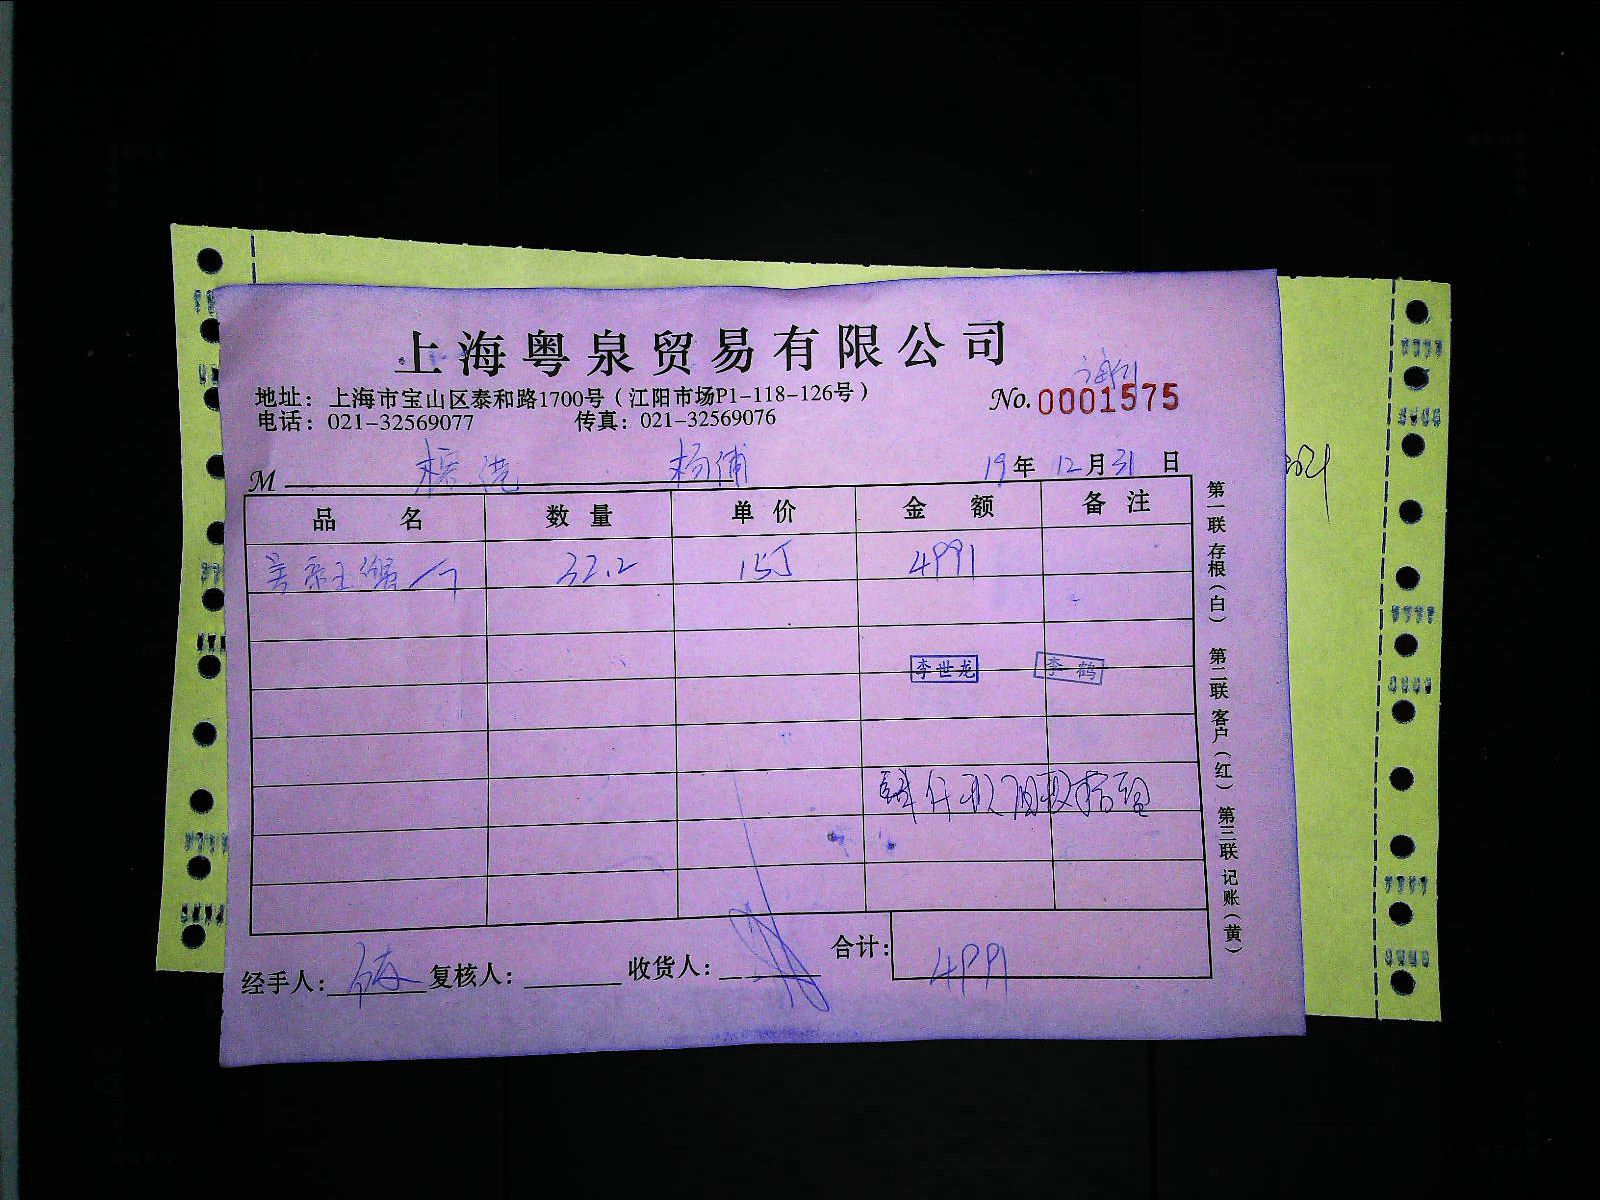 上海粤泉贸易有限公司
地址：上海市宝山区泰和路1700号（江阳市场P1-118-126号）
No.0001575
电话：021-32569077 传真：021-32569076
M 杨浦 19年12月31日
品名 数量 单价 金额 备注
32.2 155 4991
李世龙 李鹤
经手人： 复核人： 收货人： 合计： 4991
第一联 存根（白） 第二联 客户（红） 第三联 记账（黄）